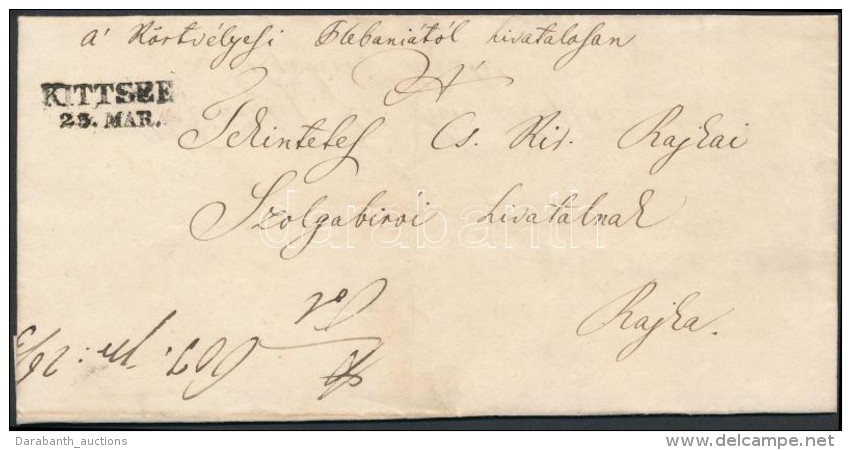 á Körtvélyesi Plebaniától hivatalosan
KITTSEE
23. MAR.
A'
Tekintetes Cs. Kir. Rajkai
Szolgabirói hivatalnak
darabanth
Rajka.
Darabanth_auctions
delcampe.net